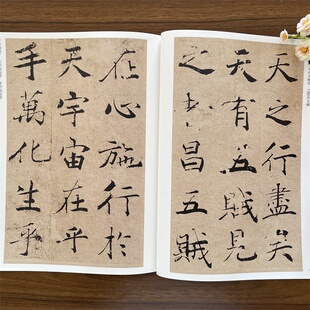 天之行盡矣
天有五賊見
之者昌五賊
在心施行於
天宇宙在乎
手萬化生乎